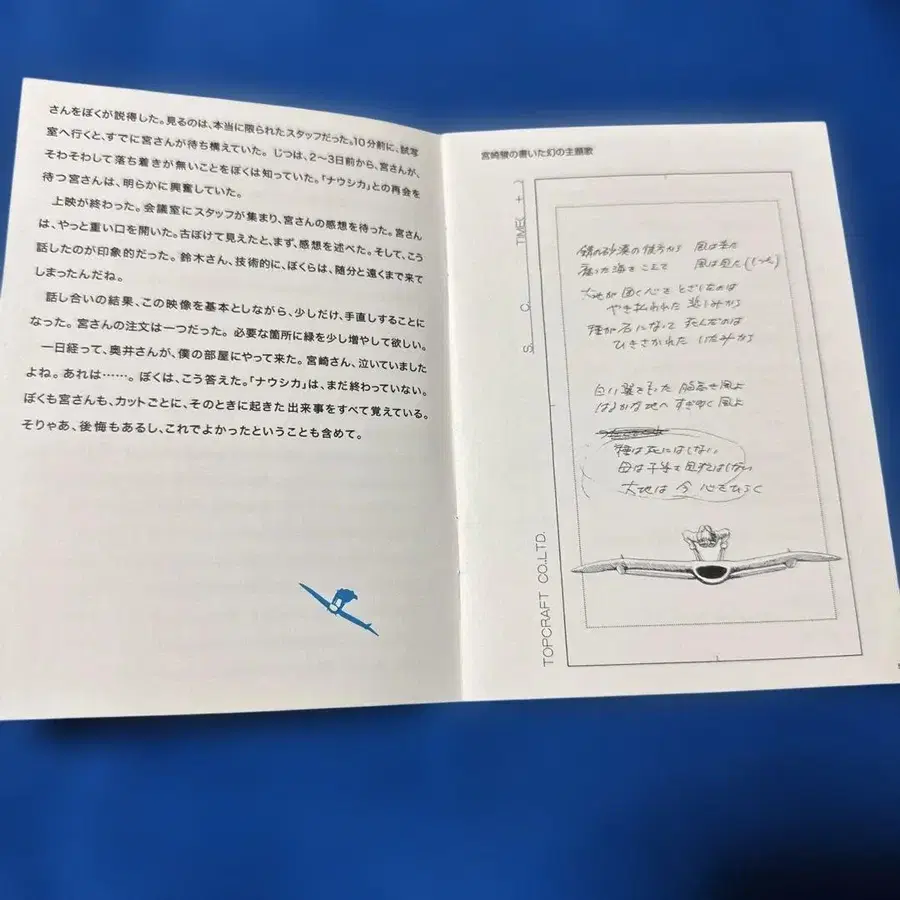 さんをぼくが説得した。見るのは、本当に限られたスタッフだった。10分前に、試写
室へ行くと、すでに宮さんが待ち構えていた。じつは、2〜3日前から、宮さんが、
そわそわして落ち着きが無いことをぼくは知っていた。「ナウシカ」との再会を
待つ宮さんは、明らかに興奮していた。
上映が終わった。会議室にスタッフが集まり、宮さんの感想を待った。宮さん
は、やっと重い口を開いた。古ぼけて見えたと、まず、感想を述べた。そして、こう
話したのが印象的だった。鈴木さん、技術的に、ぼくらは、随分と遠くまで来て
しまったんだね。
話し合いの結果、この映像を基本としながら、少しだけ、手直しすることに
なった。宮さんの注文は一つだった。必要な箇所に緑を少し増やして欲しい。
一日経って、奥井さんが、僕の部屋にやって来た。宮崎さん、泣いていました
よね。あれは……。ぼくは、こう答えた。「ナウシカ」は、まだ終わっていない。
ぼくも宮さんも、カットごとに、そのときに起きた出来事をすべて覚えている。
そりゃあ、後悔もあるし、これでよかったということも含めて。
宮崎駿の書いた幻の主題歌
S. C. TIME( + )
錆の砂漠の彼方から 風は来た
腐った海をこえて 風は
大地が固く心をとざしたのは
やき払われた 悲しみから
種が石になって 死んだのは
ひきさかれた いたみから
白い翼をもった
はるかな地へ すぎゆく風よ
種は死にはしない
母は子等を
大地は 今 心をひらく
TOPCRAFT CO.,LTD.